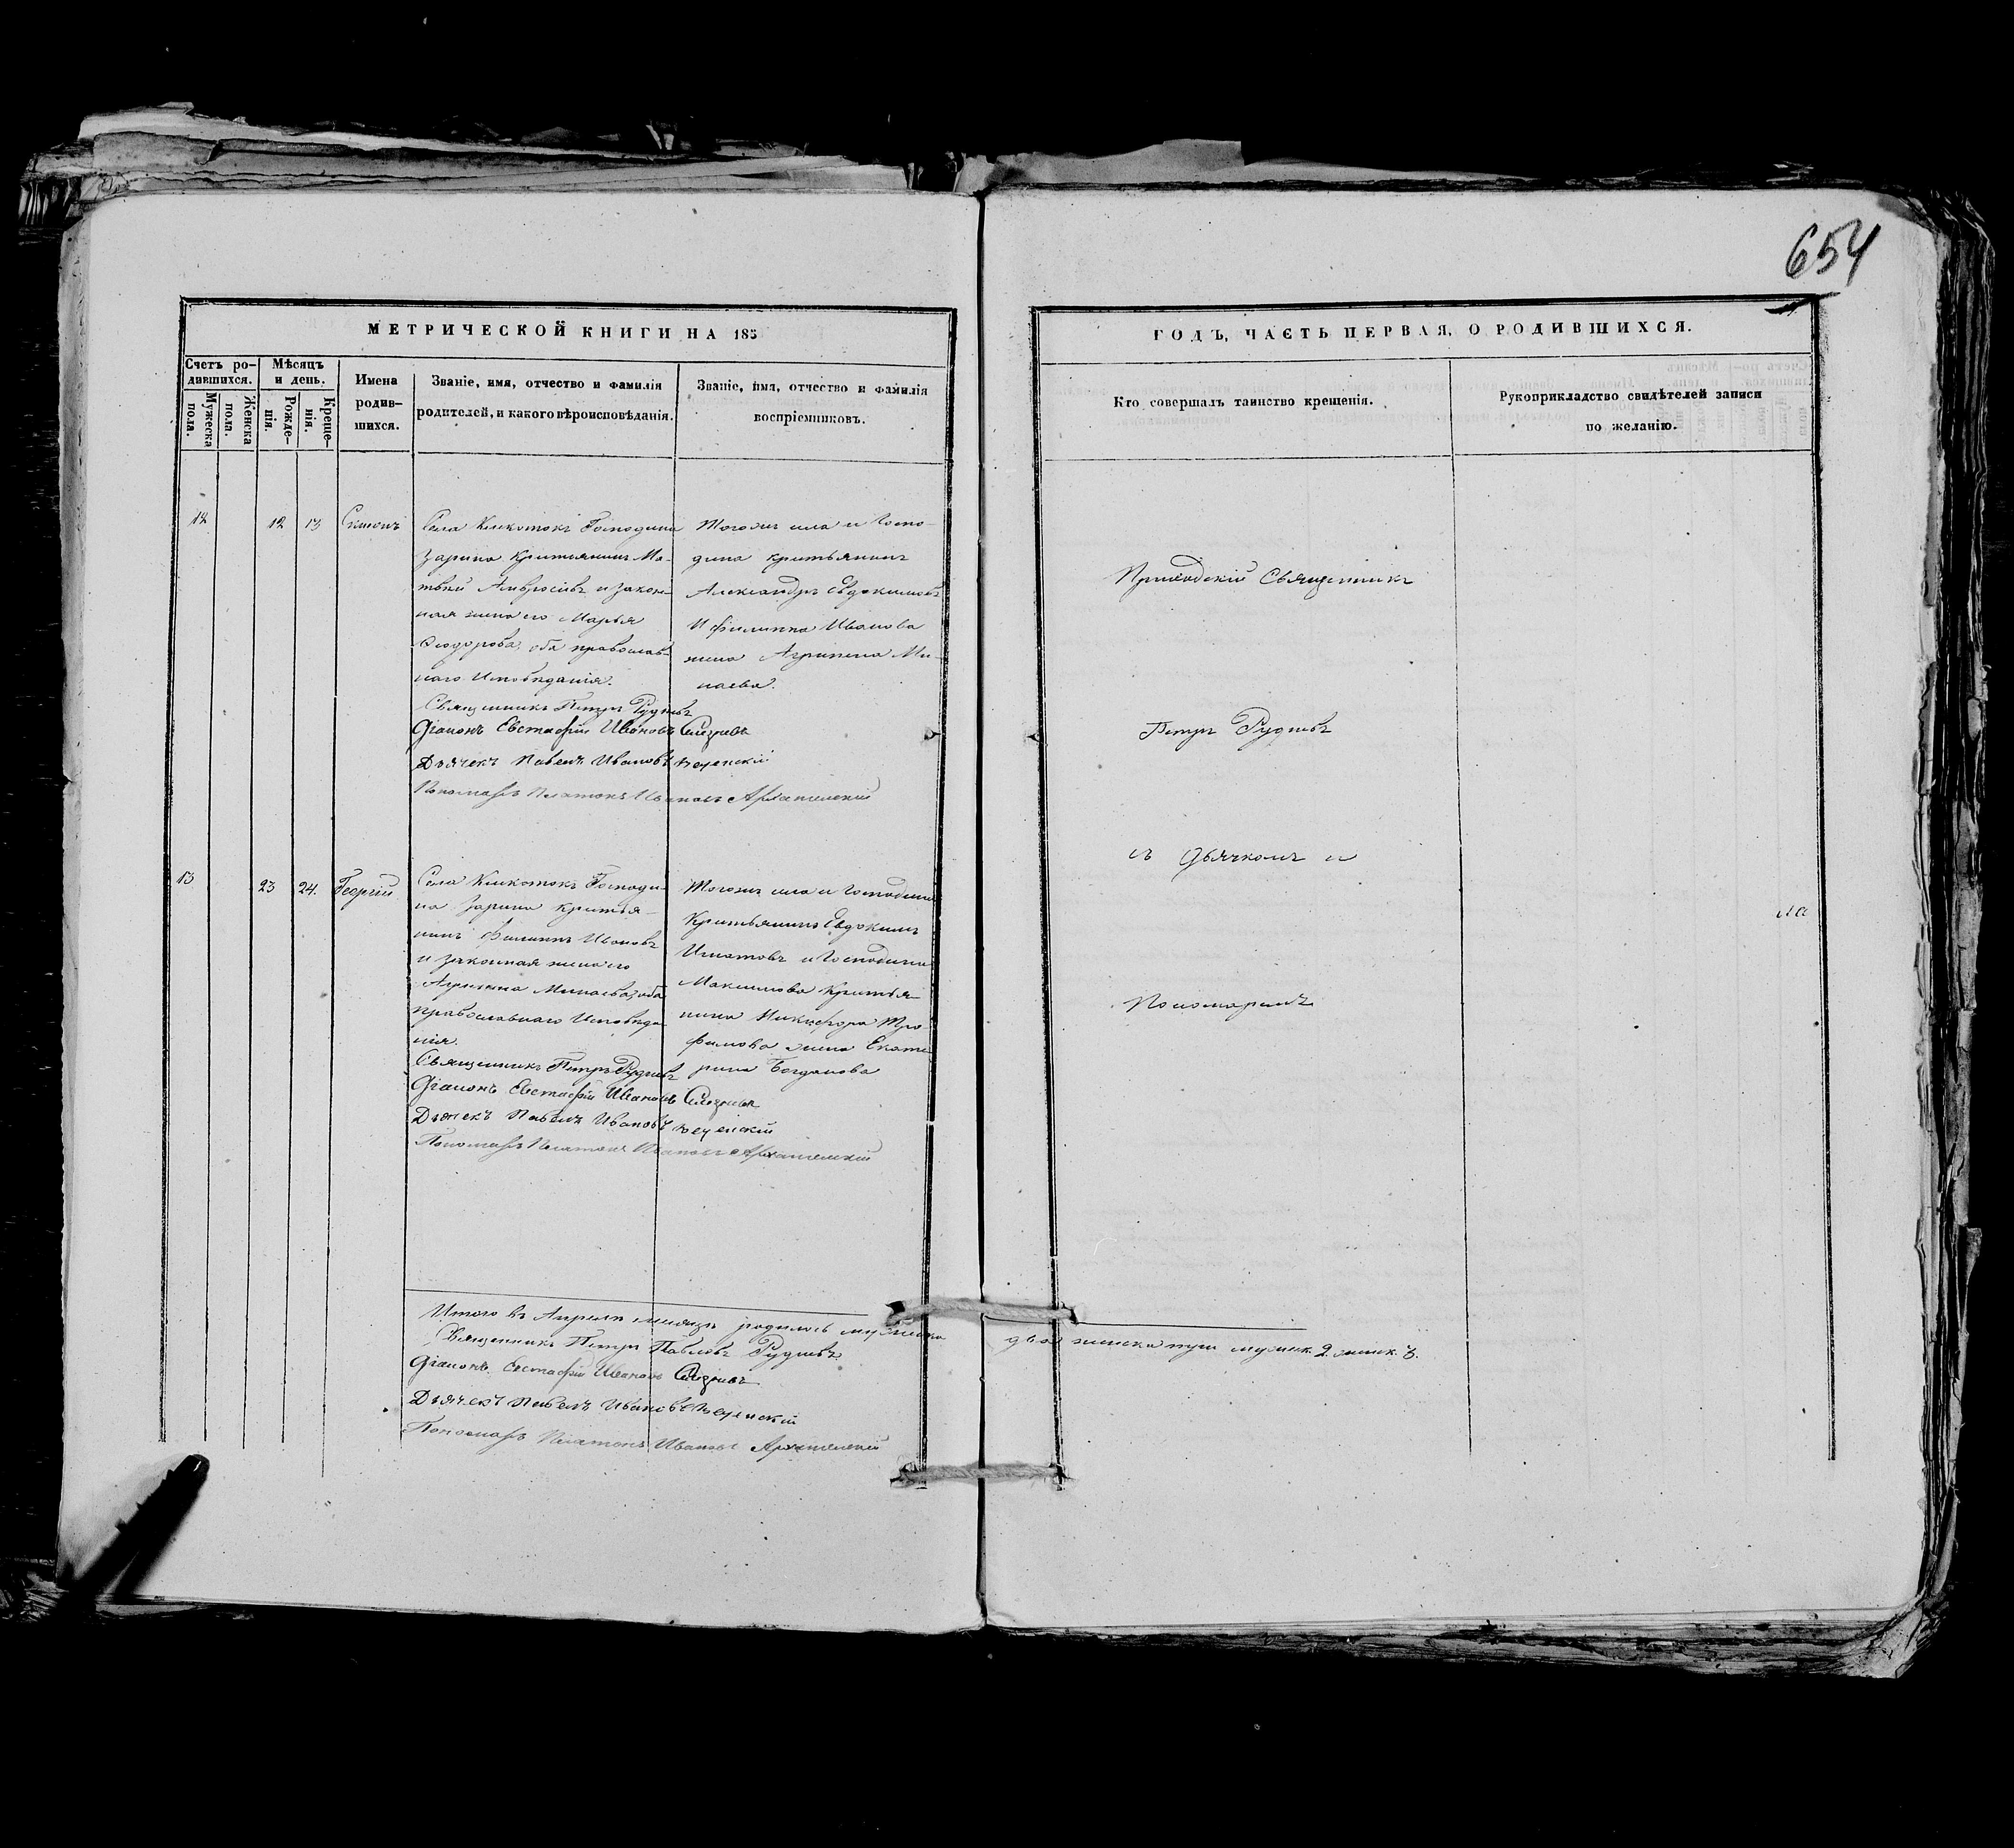 654
МЕТРИЧЕСКОЙ КНИГИ НА 185
ГОДЪ, ЧАСТЬ ПЕРВАЯ, О РОДИВШИХСЯ.
Счетъ ро-
дившихся.
Мужеска
пола.
Женска
пола.
Мѣсяцъ
и день.
Рожде-
нія.
Креще-
нія.
Имена
родив-
шихся.
Званіе, имя, отчество и фамилія
родителей, и какого вѣроисповѣданія.
Званіе, имя, отчество и фамилія
воспріемниковъ.
Кто совершалъ таинство крещенія.
Рукоприкладство свидѣтелей записи
по желанію.
12
12
13
Села Господина
Зарина Ма-
твей и закон-
ная жена его Марья
Ѳеодорова, оба православ-
наго Исповѣданія.
Священникъ Петръ Рудневъ
Діаконъ Евстафій Ивановъ
Дьячекъ Павелъ Ивановъ
Пономарь Платонъ Ивановъ Архангельскій
Тогожъ села и Госпо-
дина крестьянинъ
Александръ Евдокимовъ
И Филиппа Иванова
жена Агрипена Ми-
наева.
Приходскій Священникъ
Петръ Рудневъ
съ Дьячкомъ и
Пономаремъ
13
23
24.
Георгій
Села Господи-
на Зарина крестья-
нинъ Филиппъ Ивановъ
и законная жена его
Агрипена Минаева, оба
православнаго Исповѣда-
нія.
Священникъ Петръ Рудневъ
Діаконъ Евстафій Ивановъ
Дьячекъ Павелъ Ивановъ
Пономарь Платонъ Ивановъ Архангельскій
Тогожъ села и Господина
Крестьянинъ Евдокимъ
Игнатовъ и Господина
Максимова крестья-
нина Никифора Тро-
фимова жена Екате-
рина Богданова
Итого въ Апрелѣ месяцѣ родилось мужеска
два женска муж. 2. женск.
Священникъ Петръ Павловъ Рудневъ
Діаконъ Евстафій Ивановъ
Дьячекъ Павелъ Ивановъ
Пономарь Платонъ Ивановъ Архангельскій